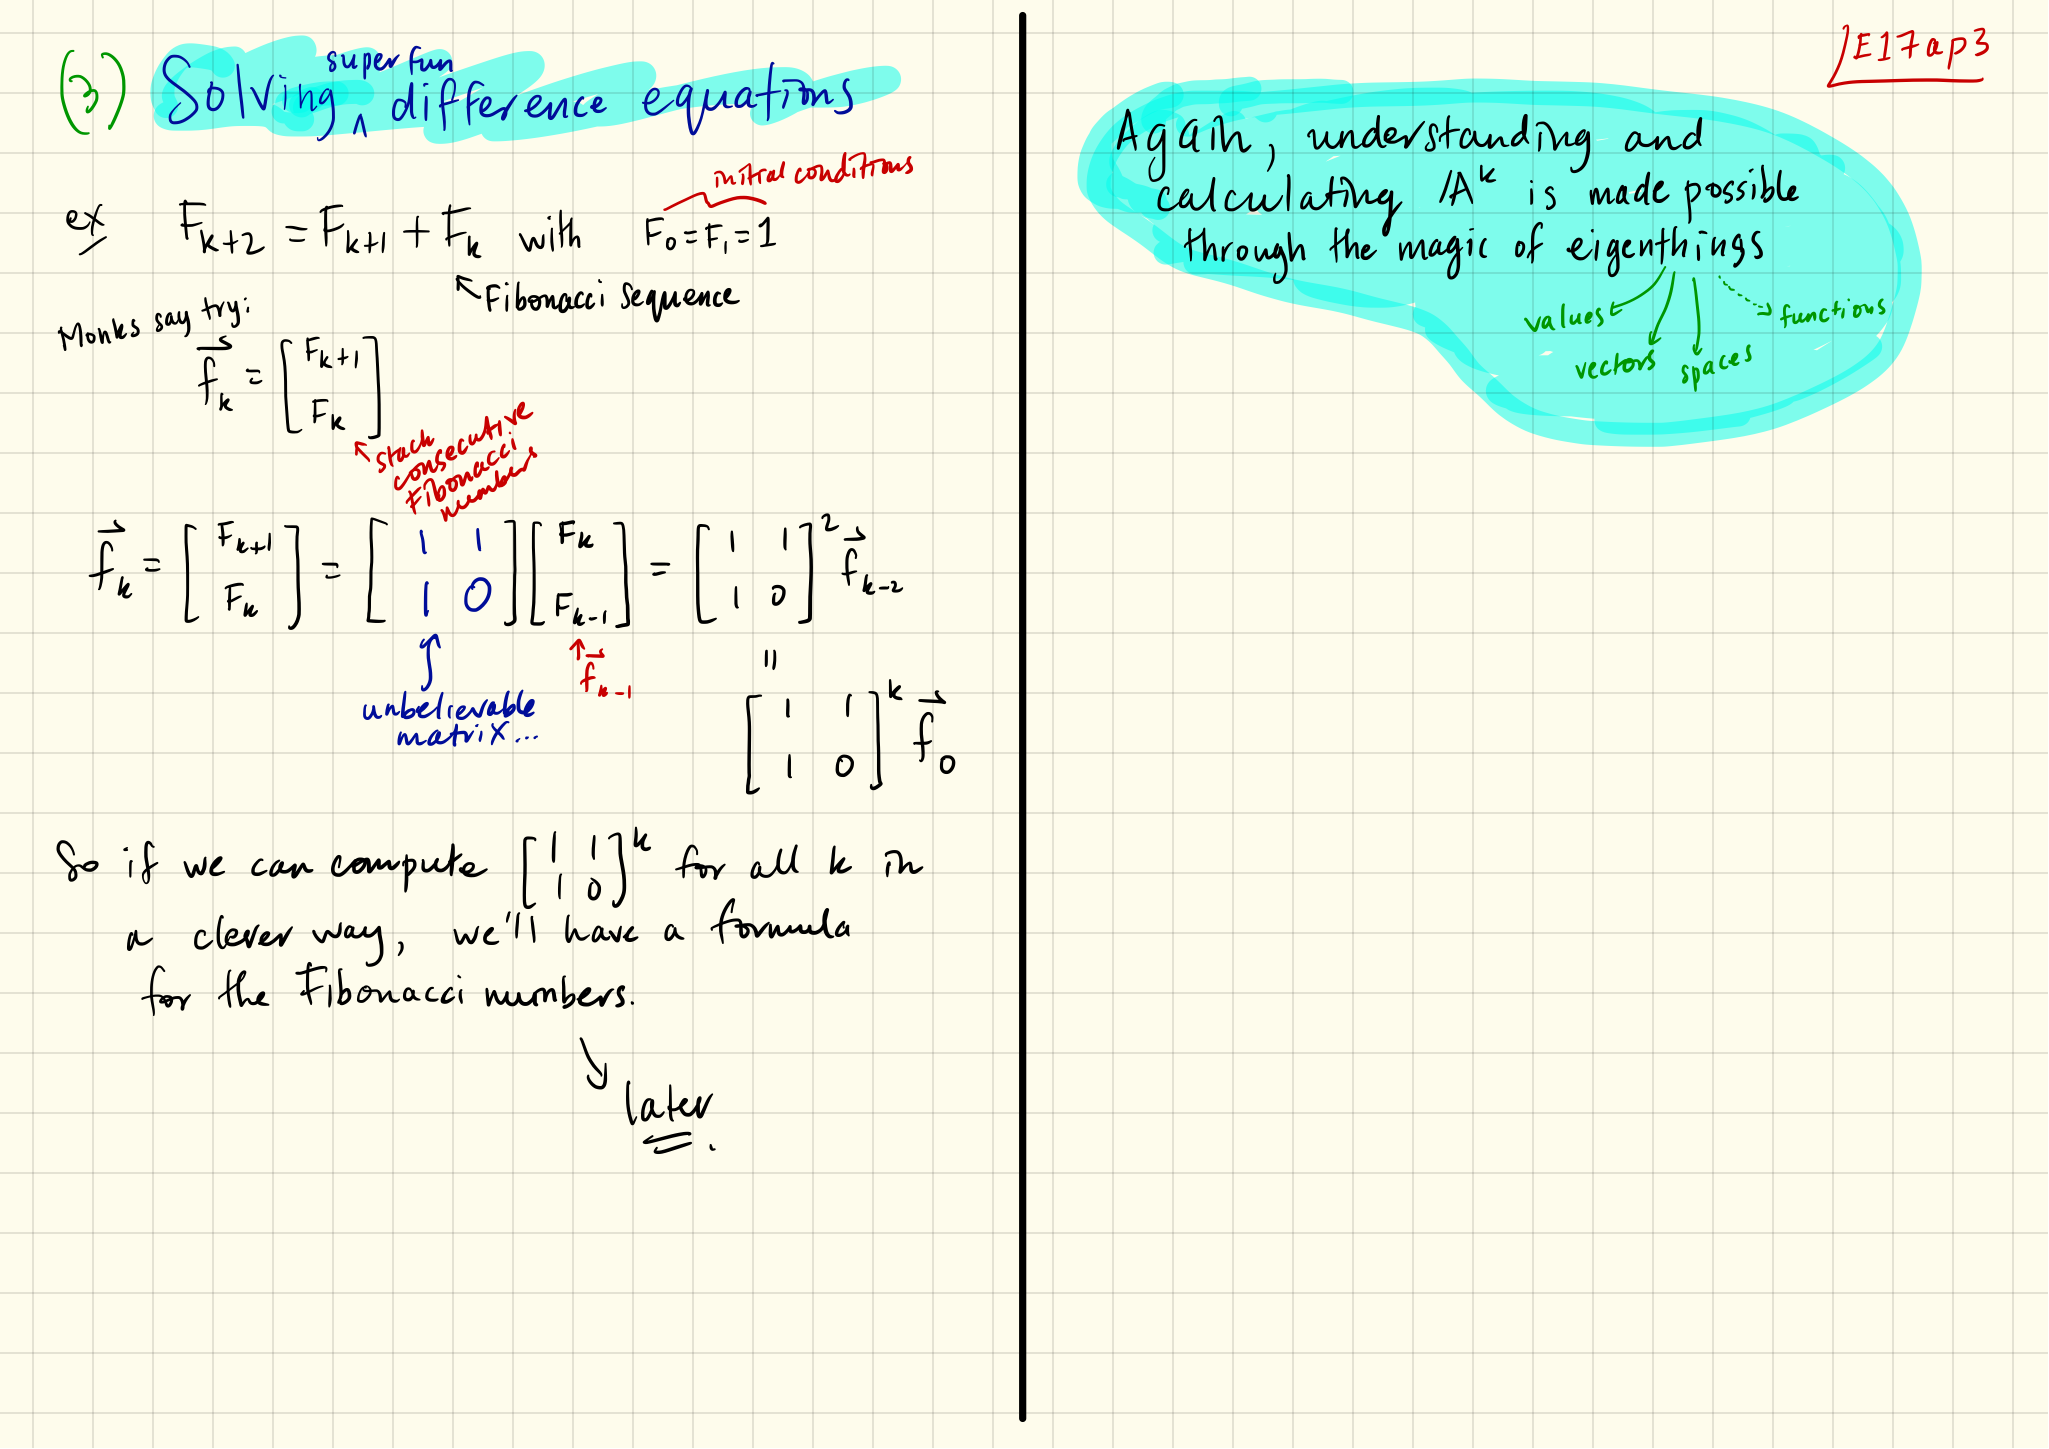 (3) Solving super fun difference equations
initial conditions
ex F_{k+2} = F_{k+1} + F_k with F_0 = F_1 = 1
↖ Fibonacci sequence
Monks say try:
\vec{f}_k = [F_{k+1}; F_k]
↖ stack
consecutive
Fibonacci
numbers
\vec{f}_k = [F_{k+1}; F_k] = [1 1; 1 0] [F_k; F_{k-1}] = [1 1; 1 0]^2 \vec{f}_{k-2}
↑ \vec{f}_{k-1}
unbelievable
matrix...
= [1 1; 1 0]^k \vec{f}_0
So if we can compute [1 1; 1 0]^k for all k in
a clever way, we'll have a formula
for the Fibonacci numbers.
↘ later.
E17ap3
Again, understanding and
calculating A^k is made possible
through the magic of eigenthings
values
vectors
spaces
functions